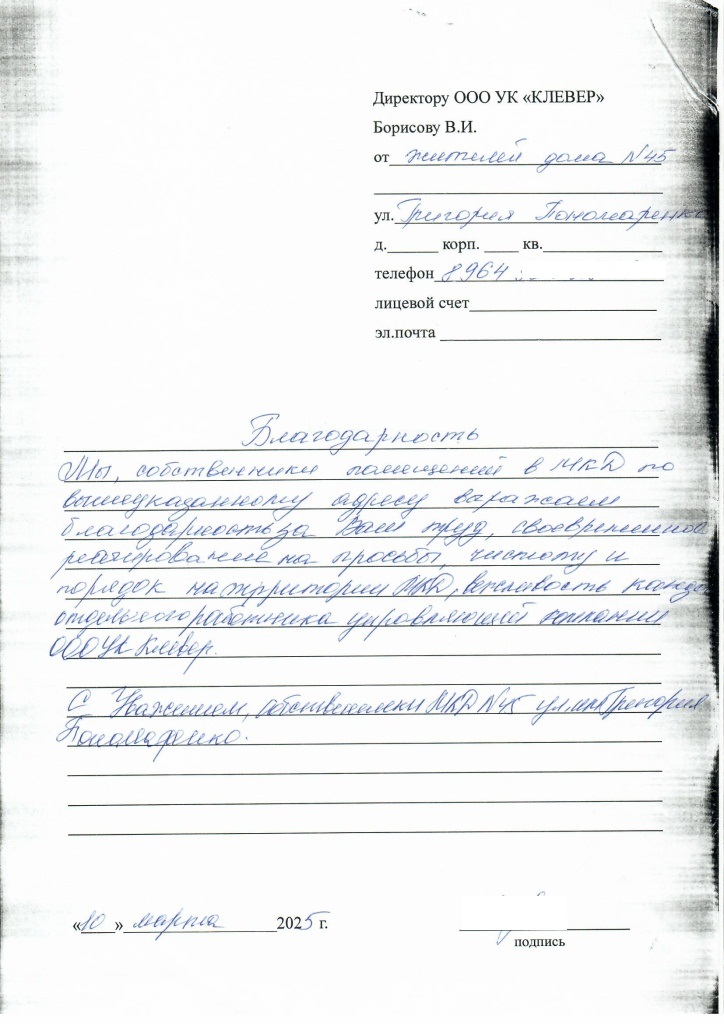 Директору ООО УК «КЛЕВЕР»
Борисову В.И.
от жителей дома №45
ул. Григория Пономаренко
д.______ корп. ____ кв.
телефон 8964
лицевой счет
эл.почта
Благодарность
Мы, собственники помещений в МКД по
вышеуказанному адресу выражаем
благодарность за Ваш труд, своевременное
реагирование на просьбы, чистоту и
порядок на территории МКД, вежливость каждого
отдельного работника управляющей компании
ООО УК Клевер.
С Уважением, собственники МКД №45 улицы Григория
Пономаренко.
«10» марта 2025 г.
подпись